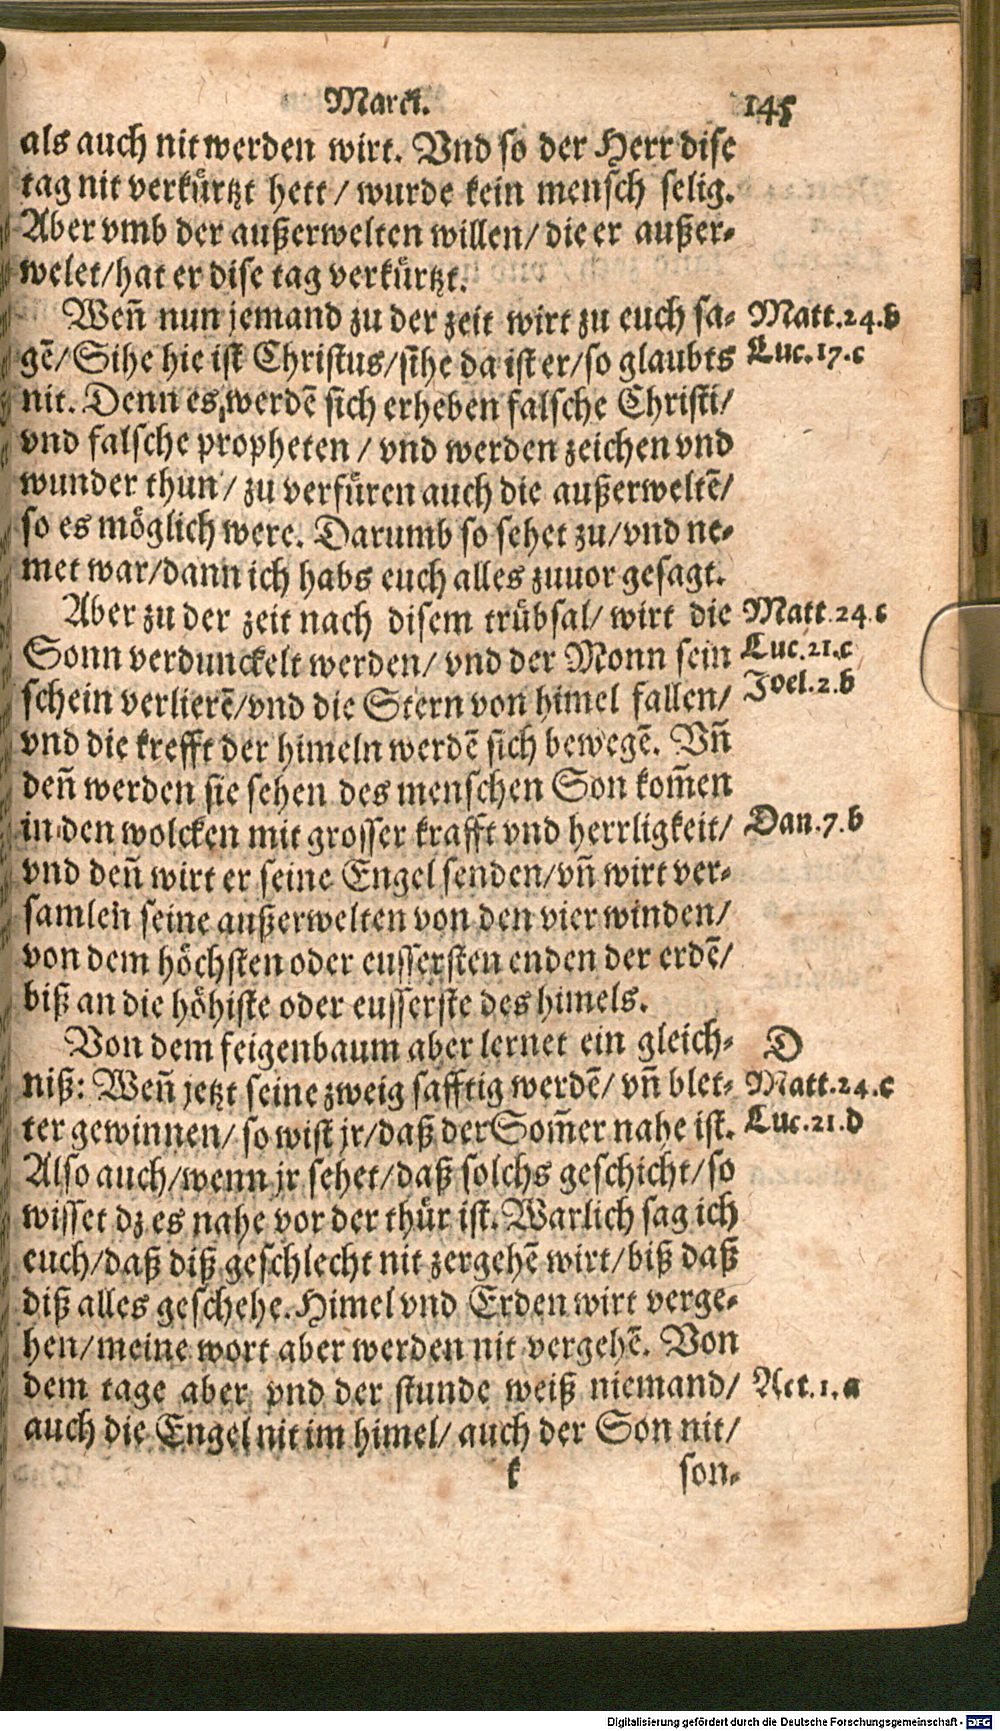 Marci.
145
als auch nit werden wirt. Vnd so der Herr dise
tag nit verkürtzt hett / wurde kein mensch selig.
Aber vmb der außerwelten willen/ die er außer-
welet/hat er dise tag verkürtzt.
Weñ nun jemand zu der zeit wirt zu euch sa-
gē/Sihe hie ist Christus/sihe da ist er/so glaubts
nit. Denn es werdē sich erheben falsche Christi/
vnd falsche propheten / vnd werden zeichen vnd
wunder thun/ zu verfüren auch die außerweltē/
so es möglich were. Darumb so sehet zu/vnd ne-
met war/dann ich habs euch alles zuuor gesagt.
Aber zu der zeit nach disem trübsal/ wirt die
Sonn verdunckelt werden/ vnd der Monn sein
schein verlierē/vnd die Stern von himel fallen/
vnd die krefft der himeln werdē sich bewegē. Vñ
deñ werden sie sehen des menschen Son kom̃en
in den wolcken mit grosser krafft vnd herrligkeit/
vnd deñ wirt er seine Engel senden/vñ wirt ver-
samlen seine außerwelten von den vier winden/
von dem höchsten oder eussersten enden der erdē/
biß an die höhiste oder eusserste des himels.
Von dem feigenbaum aber lernet ein gleich-
niß: Weñ jetzt seine zweig safftig werdē/ vñ blet-
ter gewinnen/ so wist jr/daß der Som̃er nahe ist.
Also auch/wenn jr sehet/daß solchs geschicht/so
wisset dz es nahe vor der thür ist. Warlich sag ich
euch/daß diß geschlecht nit zergehē wirt/biß daß
diß alles geschehe. Himel vnd Erden wirt verge-
hen/meine wort aber werden nit vergehē. Von
dem tage aber vnd der stunde weiß niemand/
auch die Engel nit im himel/ auch der Son nit/
k
son-
Matt.24.b
Luc.17.c
Matt.24.c
Luc.21.c
Joel.2.b
Dan.7.b
D
Matt.24.c
Luc.21.d
Act.1.a
Digitalisierung gefördert durch die Deutsche Forschungsgemeinschaft - DFG